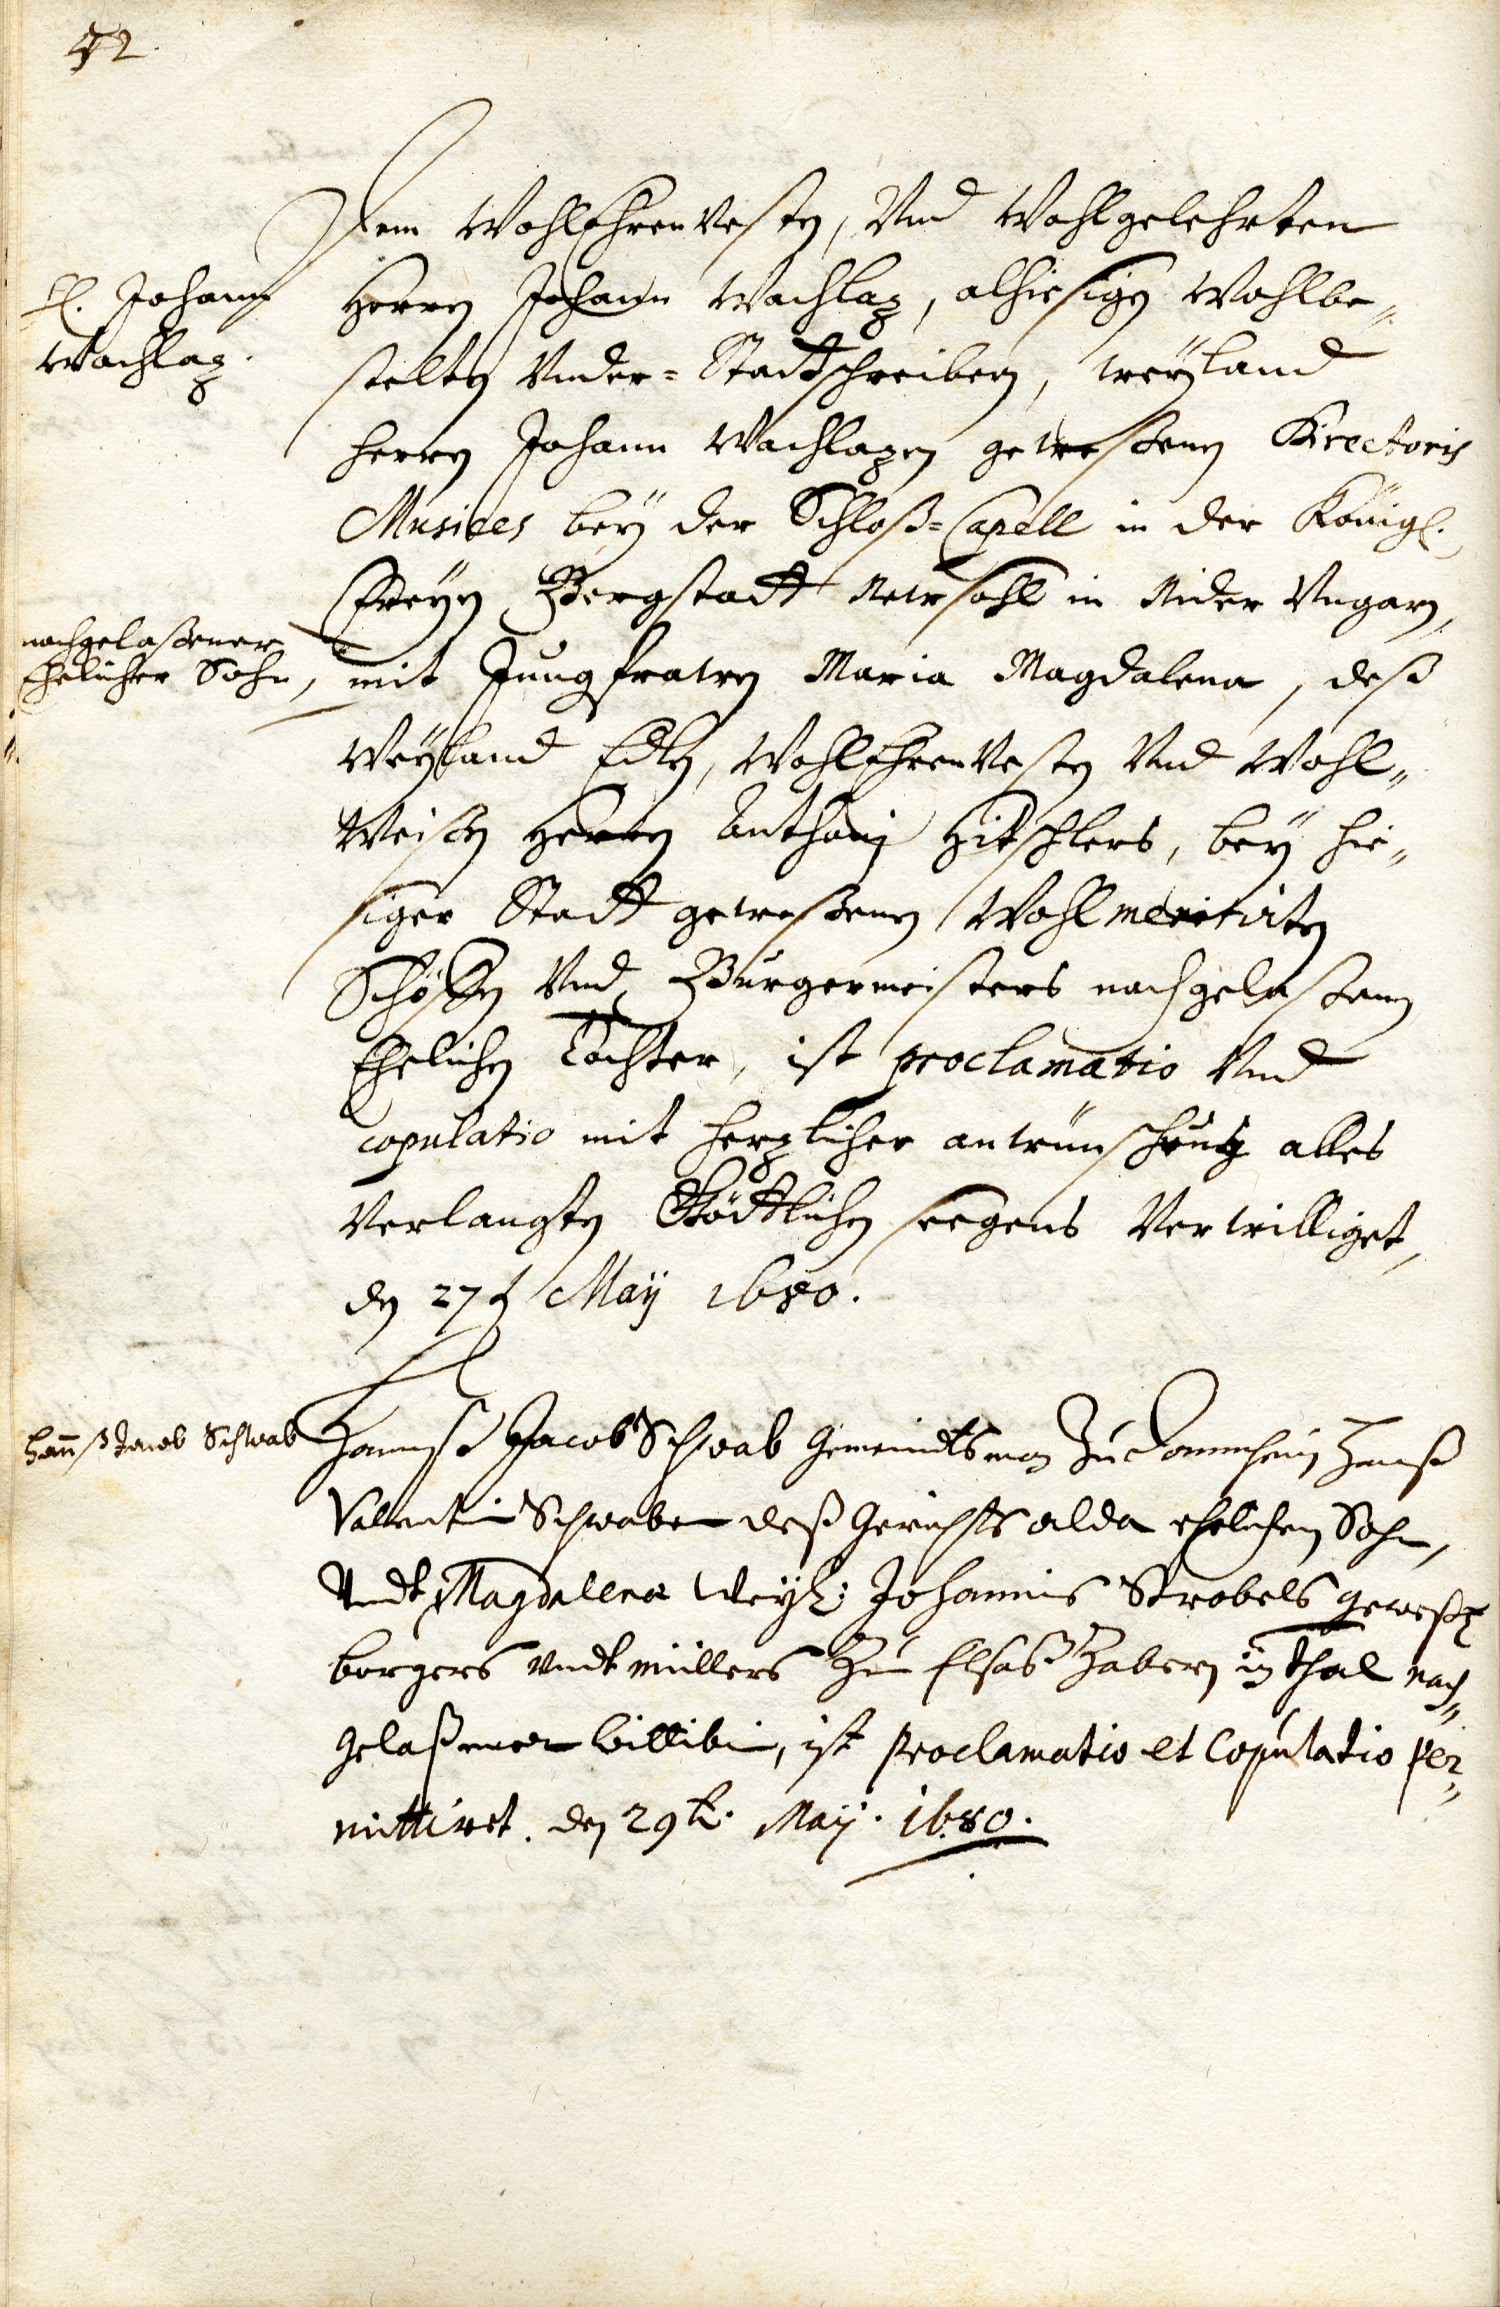 42.
Dem WohlEhrenVesten, Und Wohlgelehrten
H. Johann
Wachlaz.
Herren Johann Wachlaz, alhiesigen Wohlbe„
stelten Under-Stadtschreibern, weÿland
Herren Johann Wachlazen gewesßenen Directoris
Musices beÿ der Schloß-Capell in der Königl.
Freÿen Bergstadt Newsohl in Nider Ungarn,
nachgelaßener
Ehelicher Sohn,
mit Jungfrawen Maria Magdalena, deß
Weÿland Edlen, WohlEhrenVesten Und Wohl„
Weisen Herren Anthonij Hitschlers, beÿ hie„
siger Stadt gewesßenen Wohlmeritirten
Schöffen Und Burgermeisters nachgelasßenen
Ehelichen Tochter, ist proclamatio Und
copulatio mit herzlicher anwünschung alles
Verlangten Göttlichen seegens Verwilliget,
den 27t. Maÿ 1680.
Hannß Jacob Schwab
Hannß Jacob Schwab Gemeindtsman zu Dannheim Hannß
Valentin Schwaben deß Gerichts alda ehelichen Sohn,
Undt Magdalena Weÿl: Johannis Strobels geweßt
borgers undt müllers zu Elsaß Zabern in thal nach„
gelaßenen wittibin, ist proclamatio et Copulatio per„
mittiret. den 29t. Maÿ. 1680.